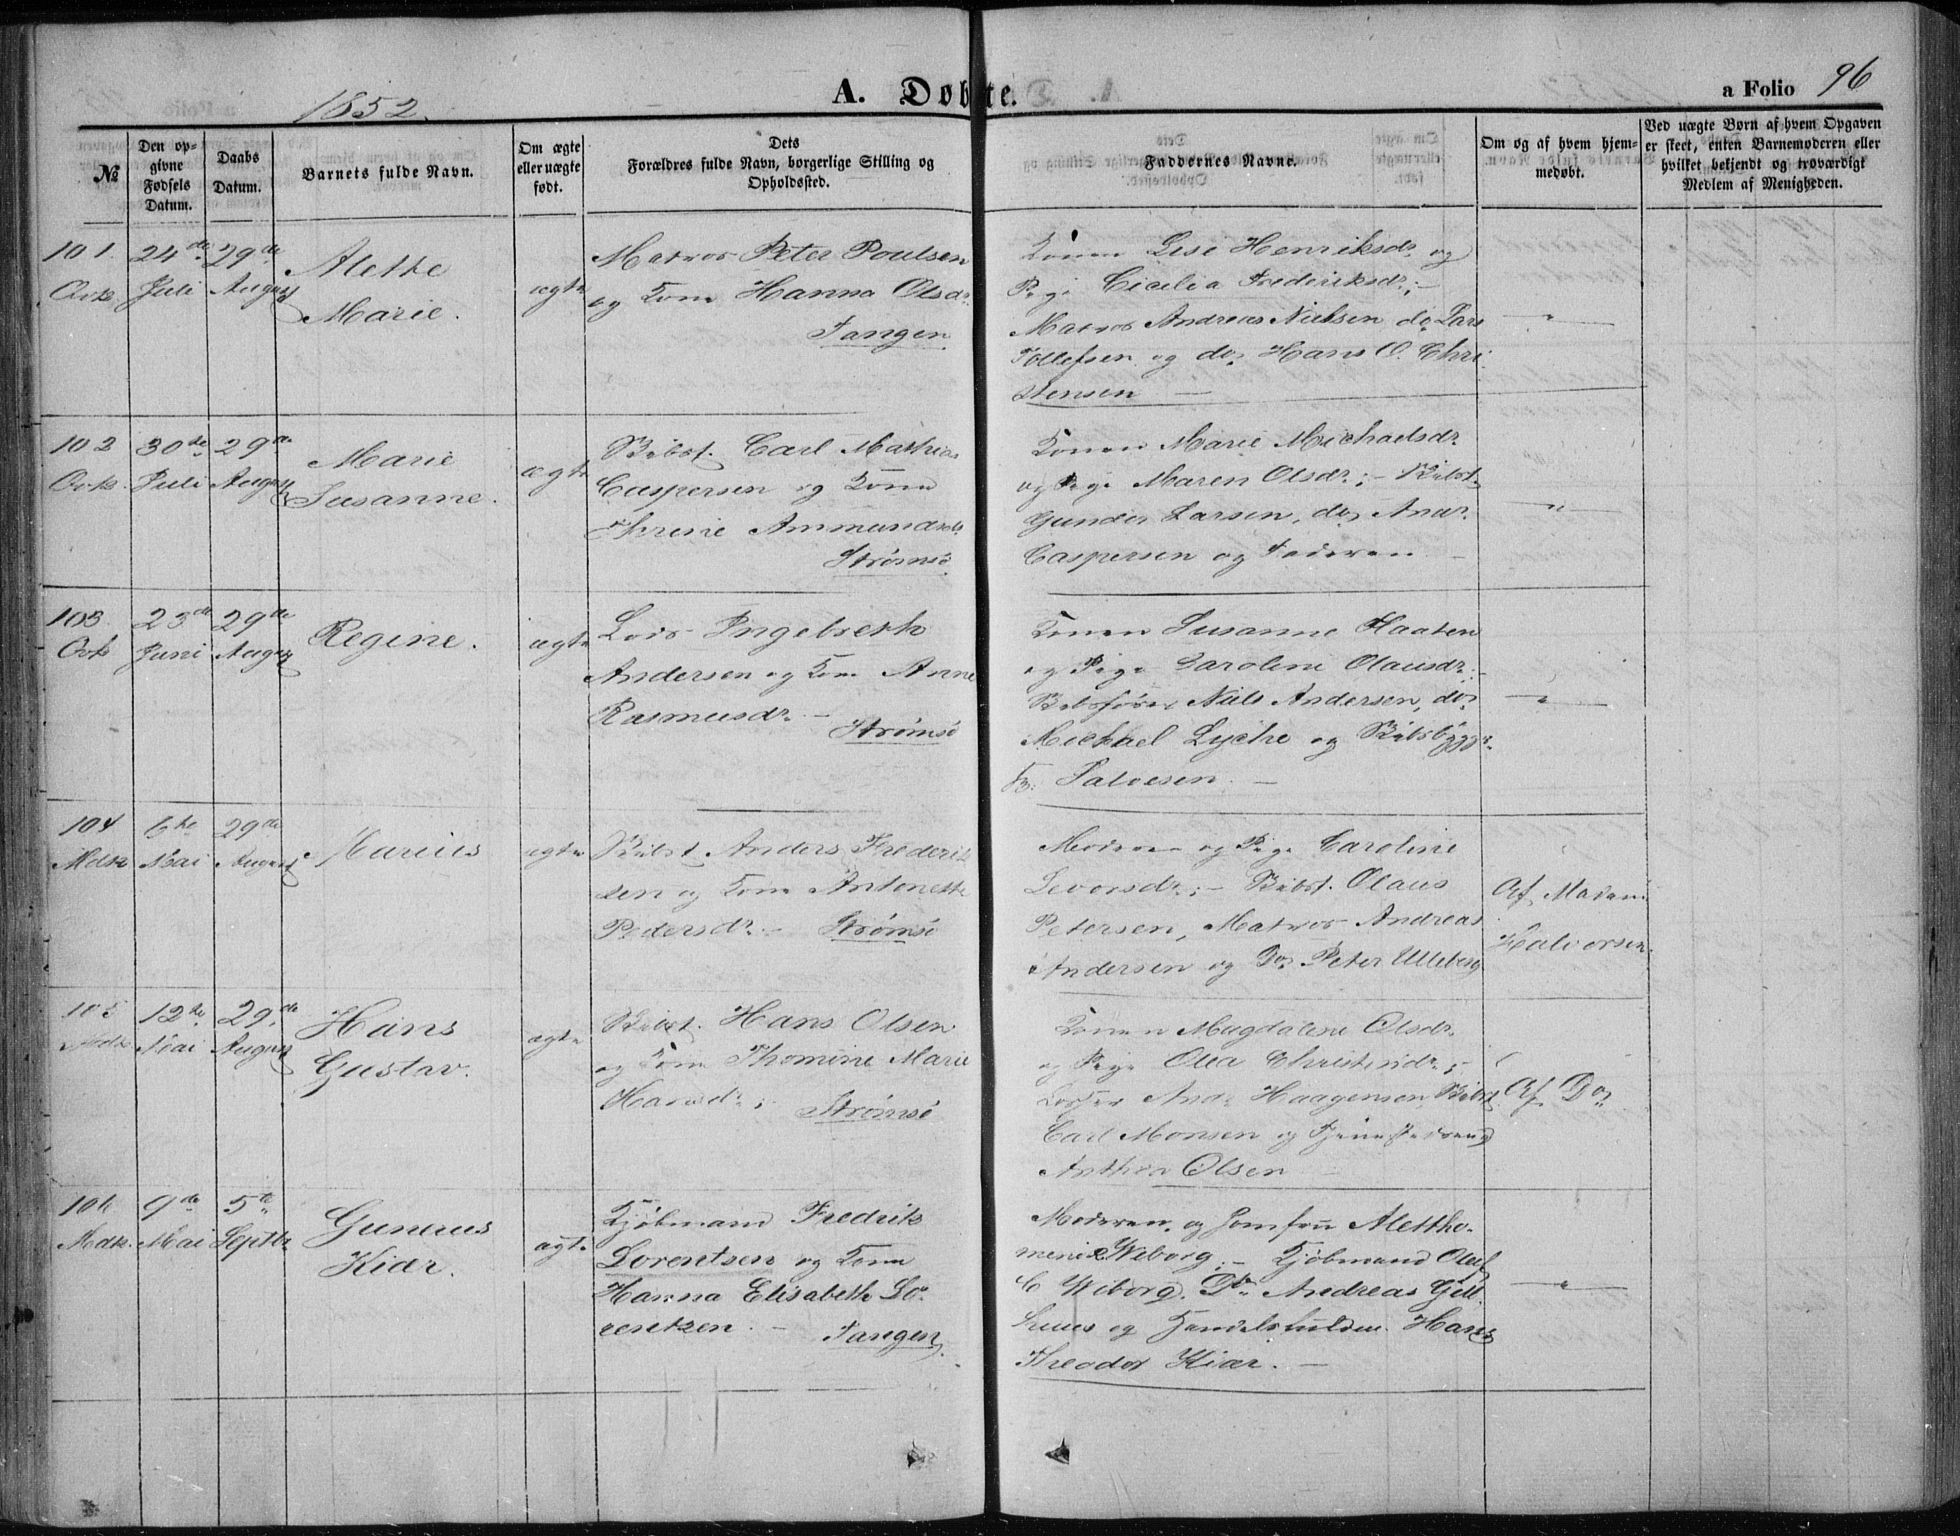 1852.
A. Døbte.
a Folio 96
№
Den opgivne Fødsels Datum.
Daabs Datum.
Barnets fulde Navn.
Om ægte eller uægte født.
Dets Forældres fulde Navn, borgerlige Stilling og Opholdssted.
Faddernes Navne.
Om og af hvem hjemmedøbt.
Ved uægte Børn af hvem Opgaven er skeet, enten Barnemoderen eller hvilket bekjendt og troværdigt Medlem af Menigheden.
101.
24de Juli
29de August
Alette
Marie.
ægte
Matros Peter Poulsen
og Kone Hanna Olsdr.
Tangen
Konen Lise Henriksdr. og
Pige Cicilia Frederiksdr.;-
Matros Andreas Nielsen do Lars
Tollefsen og do, Hans O. Chri
stensen —
102
30te Juli
29de August
Marie
Susanne.
ægte
Bibst. Carl Mathias
Caspersen og Kone
Threne Ammundsdr.
Strømsø
Konen Marie Michaelsdr.
og Pige Maren Olsdr.;- Bibst.
Gunder Larsen, do, Andr.
Caspersen og Faderen
103.
23de Juni
29de August
Regine.
ægte
Lods Ingebreth
Andersen og Kone Anne
Rasmusdr. — Strømsø
Konen Susanne Haaten
og Pige Caroline Olausdr.;-
Niels Andersen, do,
Michael Lyche og Skibsbygger
Salvesen. —
104
6te Mai
29de August
Marius
ægte
Bibst Anders Frederik
sen og Kone Antonette
Pedersdr. - Strømsø
Moderen og Pige Caroline
Levorsdr.;- Bibst. Olaus
Petersen, Matros Andreas
Andersen og Do, Peter Ulleberg
Af Madam
Halvorsen.
105
12te Mai
29de August
Hans
Gustav.
ægte
Bibst. Hans Olsen
og Kone Thomine Marie
Hansdr.; Strømsø
Konen Magdalene Olsdr.
og Pige Olea Christensdr.;
Andr. Haagensen, Bibst.
Carl Monsen og
Anthon Olsen —
Af Do,
106
9de Mai
5te Septbr.
Gunerius
Kiær.
ægte
Kjøbmand Fredrik
Lorentsen og Kone
Hanna Elisabeth Lo-
rentzen. — Tangen.
Moderen, og Jomfru Aletho-
mene Wiborg;- Kjøbmand Oluf
C Wiborg. Do Andreas Gell-
og Handelsfuldm. Hans
Theodor Kiær. —